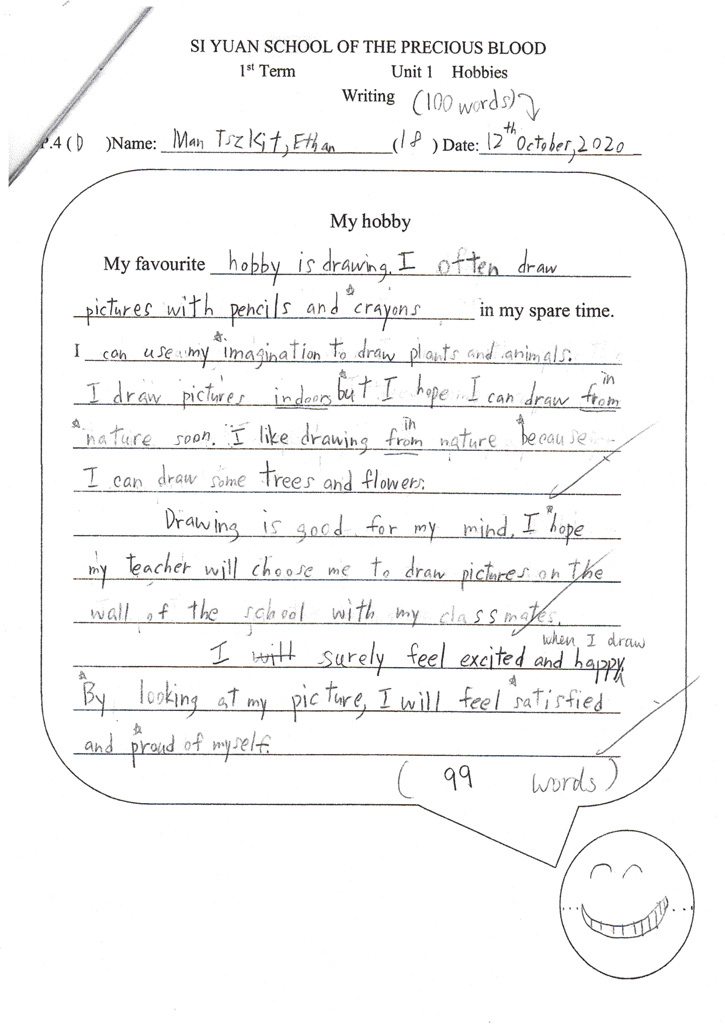 SI YUAN SCHOOL OF THE PRECIOUS BLOOD
1st Term Unit 1 Hobbies
Writing (100 words)
P.4 ( D ) Name: Man Tsz Kit, Ethan (18) Date: 12th October, 2020
My hobby
My favourite hobby is drawing. I often draw
pictures with pencils and crayons in my spare time.
I can use my imagination to draw plants and animals.
in
I draw pictures indoors but I hope I can draw from
in
nature soon. I like drawing from nature because
I can draw some trees and flowers.
Drawing is good for my mind. I hope
my teacher will choose me to draw pictures on the
wall of the school with my classmates.
when I draw
I will surely feel excited and happy.
By looking at my picture, I will feel satisfied
and proud of myself.
( 99 words)